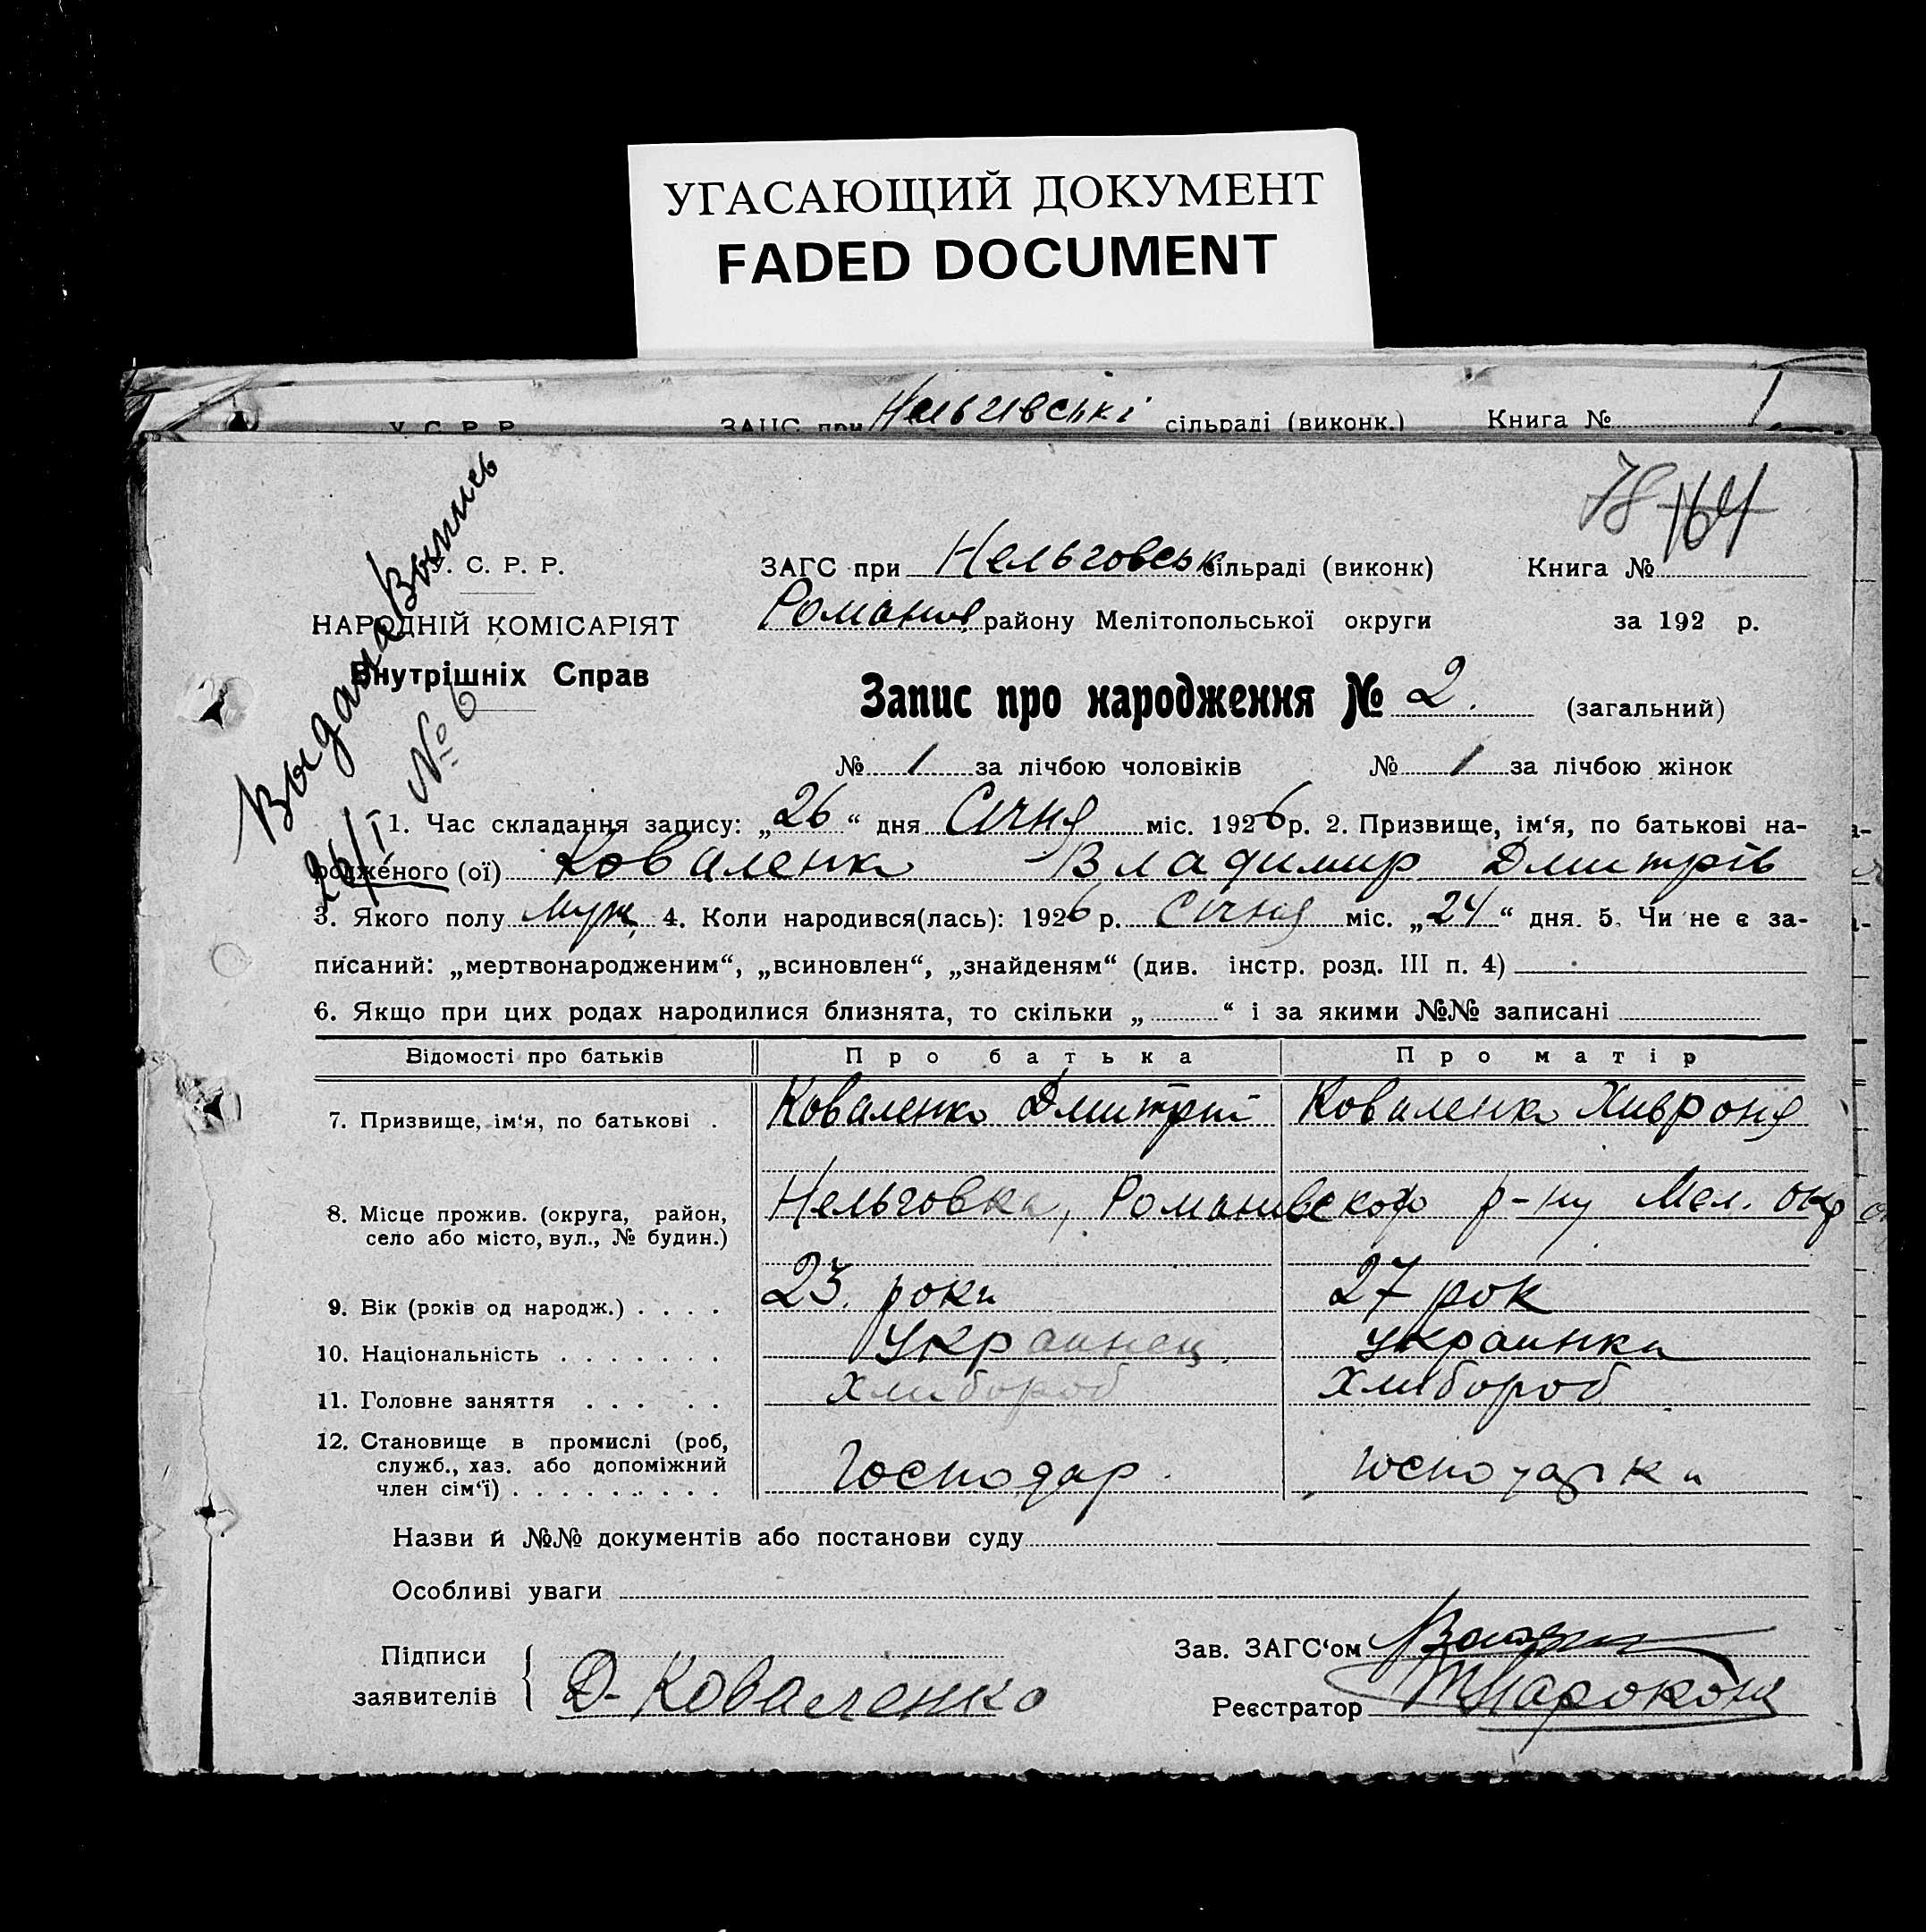 УГАСАЮЩИЙ ДОКУМЕНТ
FADED DOCUMENT
У. С. Р. Р. ЗАЦС при Нельгивські сільраді (виконк.) Книга № 1
78 164
Выдана Выпись
26/I № 6
У. С. Р. Р.
НАРОДНІЙ КОМІСАРІЯТ
Внутрішніх Справ
ЗАГС при Нельговськ сільраді (виконк) Книга №
Романів району Мелітопольської округи за 192 р.
Запис про народження № 2. (загальний)
№ 1 за лічбою чоловіків № 1 за лічбою жінок
1. Час складання запису: „26“ дня Січня міс. 1926 р. 2. Призвище, ім‘я, по батькові на-
родженого (ої) Коваленко Владимир Дмитрів
3. Якого полу Муж. 4. Коли народився(лась): 1926 р. Січня міс. „24“ дня. 5. Чи не є за-
писаний: „мертвонародженим“, „всиновлен“, „знайденям“ (див. інстр. розд. III п. 4)
6. Якщо при цих родах народилися близнята, то скільки „ “ і за якими №№ записані
Відомості про батьків Про батька Про матір
7. Призвище, ім‘я, по батькові . Коваленко Дмитрій Коваленко Хивроня
8. Місце прожив. (округа, район, Нельговка, Романивского р-ну Мел. окр
село або місто, вул., № будин.)
9. Вік (років од народж.) . . . . 23. роки 27 рок
10. Національність . . . . . . . Украинец. Украинка
11. Головне заняття . . . . . Хлибороб Хлибороб
12. Становище в промислі (роб,
служб., хаз. або допоміжний Господар. господарка
член сім‘ї) . . . . . . . . .
Назви й №№ документів або постанови суду
Особливі уваги
Підписи
заявителів Д-Коваленко
Зав. ЗАГС‘ом
Реєстратор